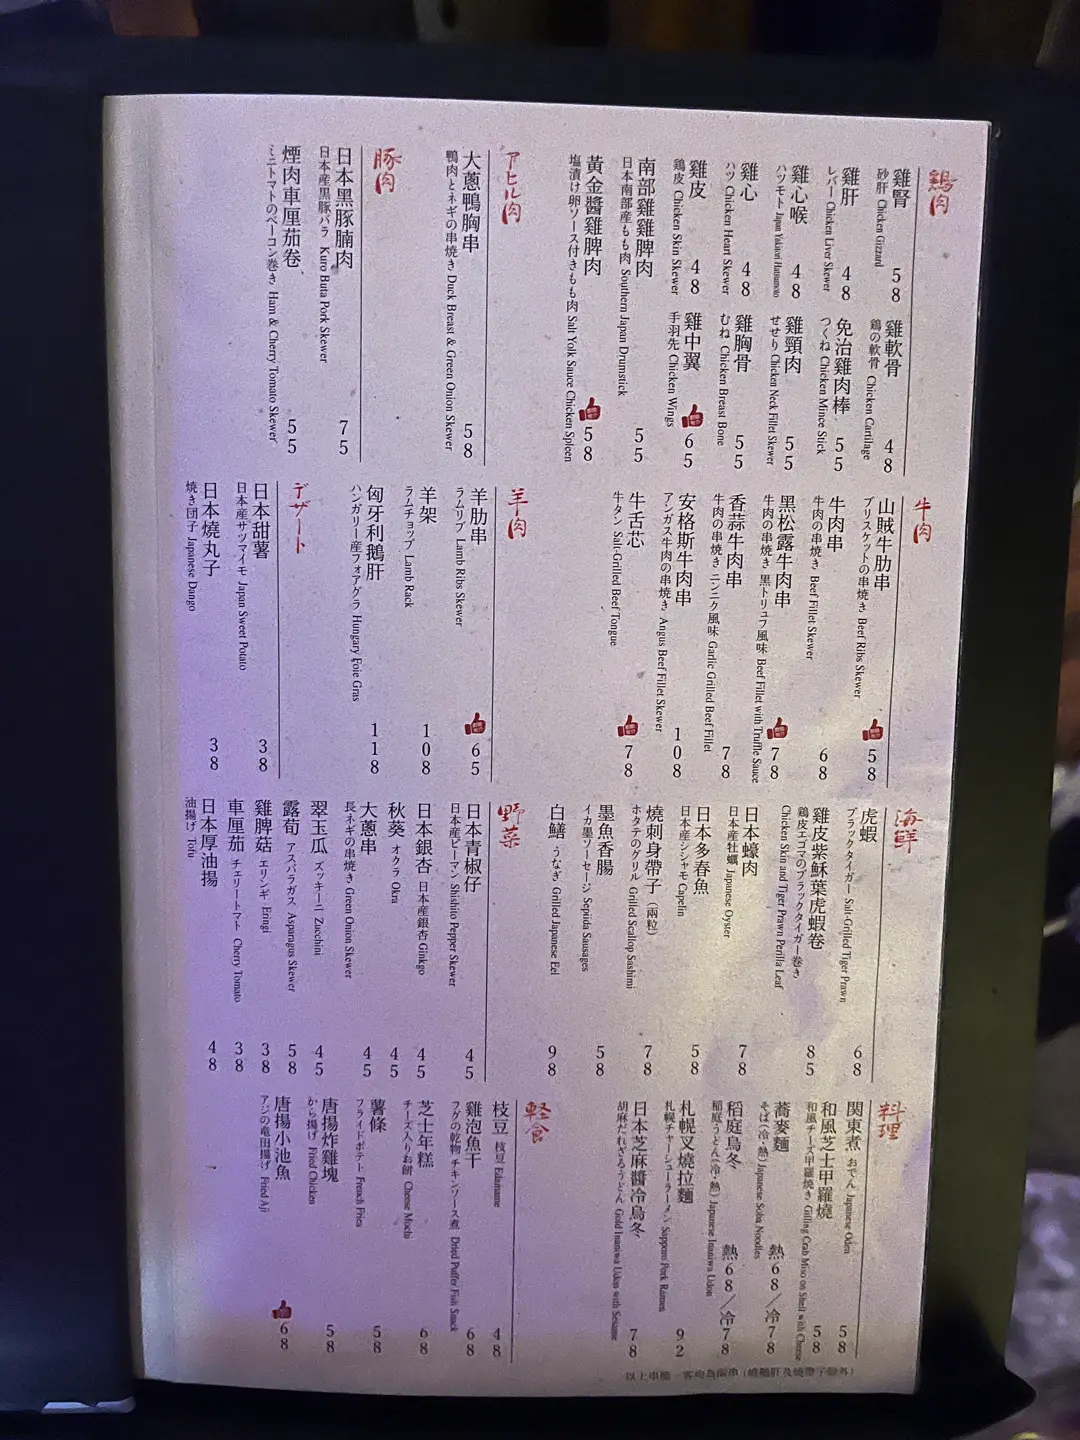 鶏肉
雞腎 58
砂肝 Chicken Gizzard
雞肝 48
レバー Chicken Liver Skewer
雞心喉 48
ハツモト Japan Yakitori Hatsumoto
雞心 48
ハツ Chicken Heart Skewer
雞皮 48
鶏皮 Chicken Skin Skewer
雞軟骨 48
鶏の軟骨 Chicken Cartilage
免治雞肉棒 55
つくね Chicken Mince Stick
雞頸肉 55
せせり Chicken Neck Fillet Skewer
雞胸骨 55
むね Chicken Breast Bone
雞中翼 65
手羽先 Chicken Wings
南部雞雞脾肉 55
日本南部産もも肉 Southern Japan Drumstick
黃金醬雞脾肉 58
塩漬け卵ソース付きもも肉 Salt Yolk Sauce Chicken Spleen
アヒル肉
大蔥鴨胸串 58
鴨肉とネギの串焼き Duck Breast & Green Onion Skewer
豚肉
日本黑豚腩肉 75
日本産黒豚バラ Kuro Buta Pork Skewer
煙肉車厘茄卷 55
ミニトマトのベーコン巻き Ham & Cherry Tomato Skewer
牛肉
山賊牛肋串 58
ブリスケットの串焼き Beef Ribs Skewer
牛肉串 68
牛肉の串焼き Beef Fillet Skewer
黑松露牛肉串 78
牛肉の串焼き 黒トリュフ風味 Beef Fillet with Truffle Sauce
香蒜牛肉串 78
牛肉の串焼き ニンニク風味 Garlic Grilled Beef Fillet
安格斯牛肉串 108
アンガス牛肉の串焼き Angus Beef Fillet Skewer
牛舌芯 78
牛タン Salt-Grilled Beef Tongue
羊肉
羊肋串 65
ラムリブ Lamb Ribs Skewer
羊架 108
ラムチョップ Lamb Rack
匈牙利鵝肝 118
ハンガリー産フォアグラ Hungary Foie Gras
デザート
日本甜薯 38
日本産サツマイモ Japan Sweet Potato
日本燒丸子 38
焼き団子 Japanese Dango
海鮮
虎蝦 68
ブラックタイガー Salt-Grilled Tiger Prawn
雞皮紫穌葉虎蝦卷 85
鶏皮エゴマのブラックタイガー巻き
Chicken Skin and Tiger Prawn Perilla Leaf
日本蠔肉 78
日本産牡蠣 Japanese Oyster
日本多春魚 58
日本産シシャモ Capelin
燒刺身帶子（兩粒） 78
ホタテのグリル Grilled Scallop Sashimi
墨魚香腸 58
イカ墨ソーセージ Sepiida Sausages
白鱔 うなぎ Grilled Japanese Eel 98
野菜
日本青椒仔 45
日本産ピーマン Shishito Pepper Skewer
日本銀杏 日本産銀杏 Ginkgo 45
秋葵 オクラ Okra 45
大蔥串 45
長ネギの串焼き Green Onion Skewer
翠玉瓜 ズッキーニ Zucchini 45
露荀 アスパラガス Asparagus Skewer 58
雞脾菇 エリンギ Eringi 38
車厘茄 チェリートマト Cherry Tomato 38
日本厚油揚 48
油揚げ Tofu
料理
関東煮 おでん Japanese Oden 58
和風芝士甲羅燒 58
和風チーズ甲羅焼き Gilling Crab Miso on Shell with Cheese
蕎麥麵 熱68／冷78
そば（冷・熱） Japanese Soba Noodles
稻庭烏冬 熱68／冷78
稲庭うどん（冷・熱） Japanese Inaniwa Udon
札幌叉燒拉麵 92
札幌チャーシューラーメン Sapporo Pork Ramen
日本芝麻醬冷烏冬 78
胡麻だれざるうどん Gold Inaniwa Udon with Sesame
軽食
枝豆 枝豆 Edamame 48
雞泡魚干 68
フグの乾物 チキンソース煮 Dried Puffer Fish Snack
芝士年糕 68
チーズ入りお餅 Cheese Mochi
薯條 58
フライドポテト French Fries
唐揚炸雞塊 58
から揚げ Fried Chicken
唐揚小池魚 68
アジの竜田揚げ Fried Aji